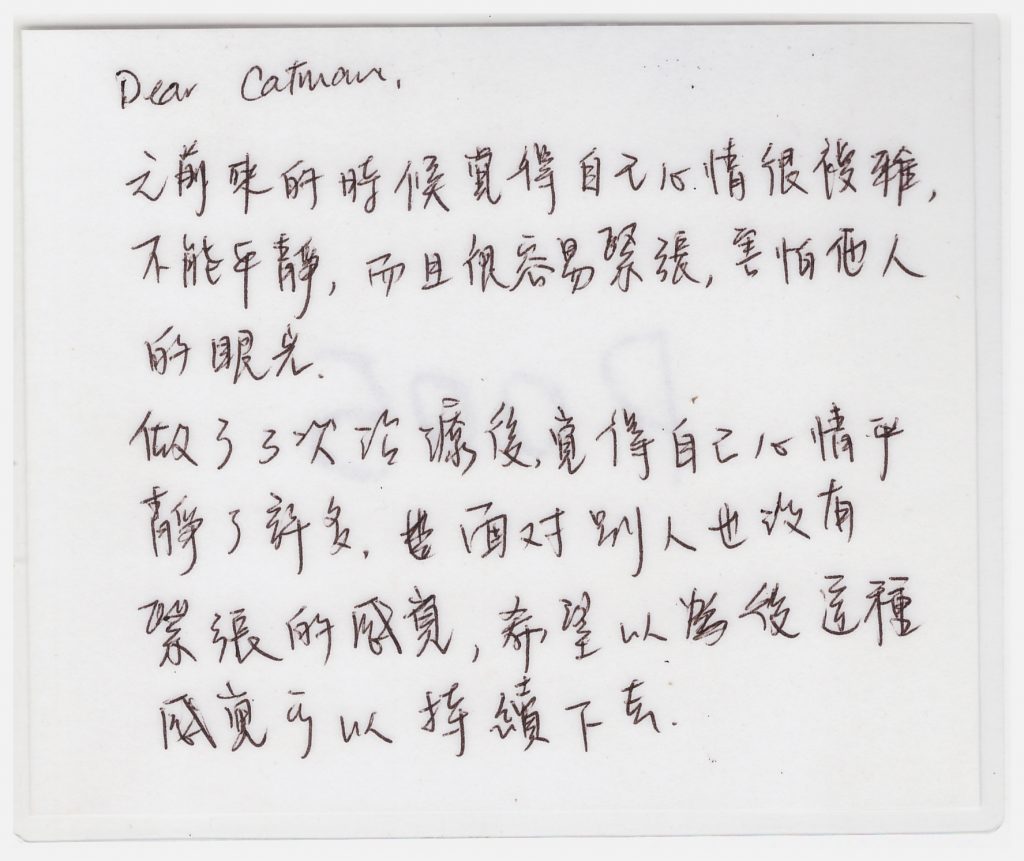 Dear Catman,
之前來的時候覺得自己心情很複雜,
不能平靜, 而且很容易緊張, 害怕他人
的眼光.
做了3次治療後,覺得自己心情平
靜了許多, 面对別人也没有
緊張的感覺, 希望以後這種
感覺可以持續下去.